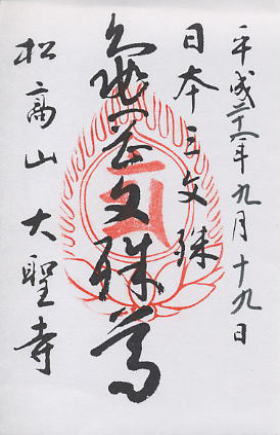 平成 年九月十九日
日本三文殊
亀岡文殊尊
松高山大聖寺